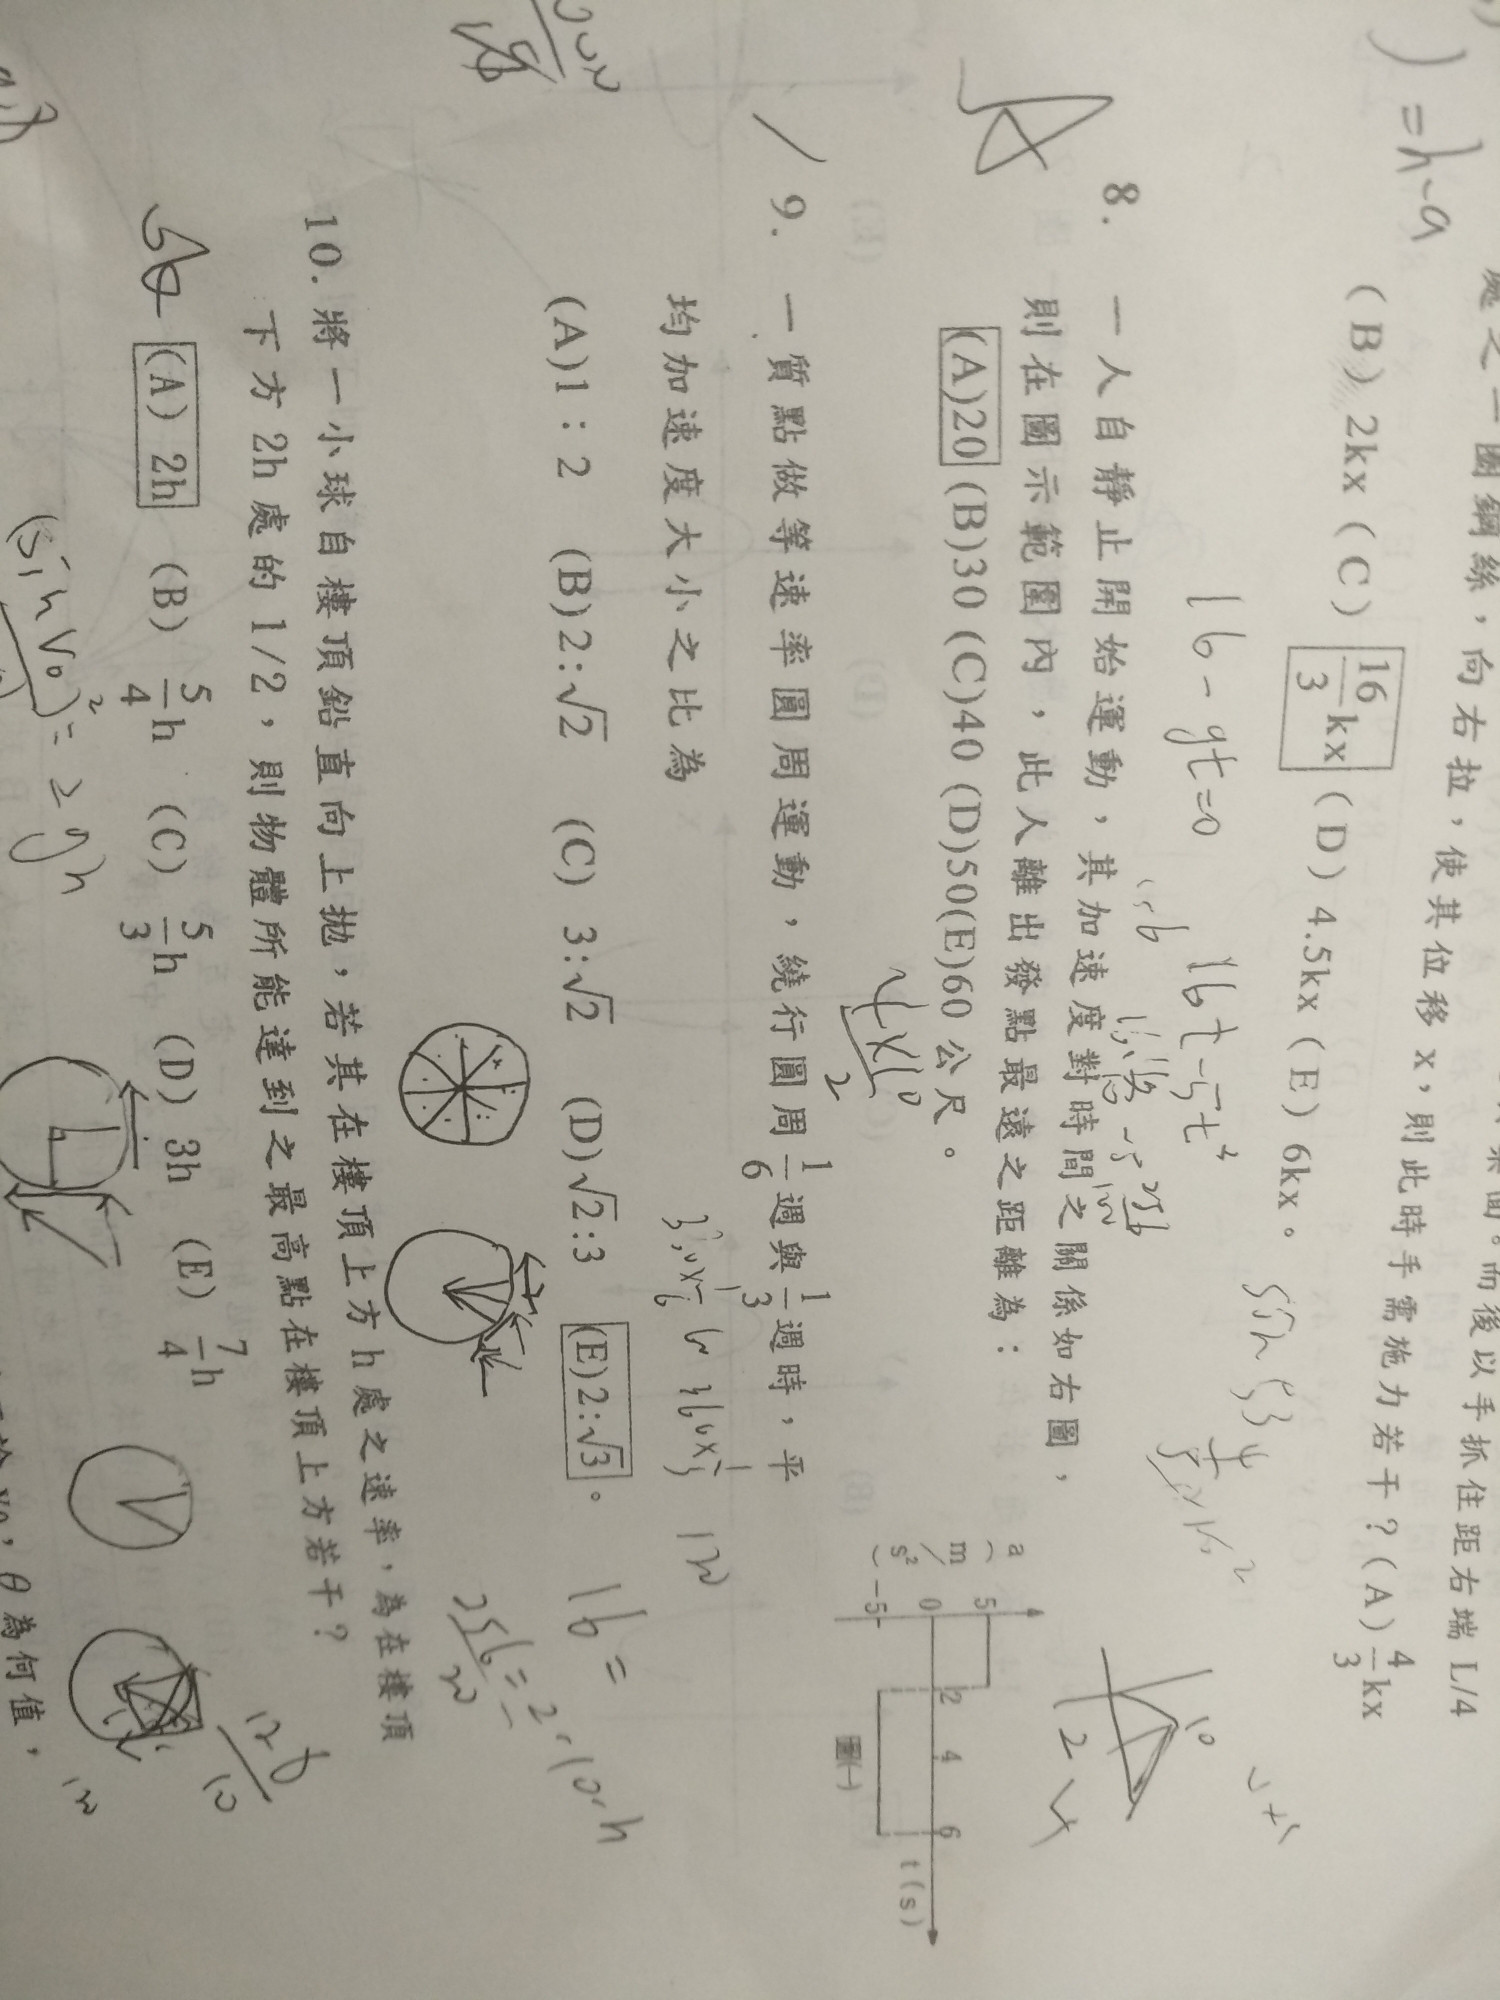 ) = h - a
處之一圈鋼絲，向右拉，使其位移 x，則此時手需施力若干？(A) 4/3 kx
而後以手抓住距右端 L/4
(B) 2kx (C) 16/3 kx (D) 4.5kx (E) 6kx。
16 - gt = 0
8. 一人自靜止開始運動，其加速度對時間之關係如右圖，
則在圖示範圍內，此人離出發點最遠之距離為：
(A)20 (B)30 (C)40 (D)50 (E)60 公尺。
a
(m/s²)
5
0
-5
2 4 6
t(s)
圖(一)
10
2
4×10
2
9. 一質點做等速率圓周運動，繞行圓周 1/6 週與 1/3 週時，平
均加速度大小之比為
(A)1：2 (B)2:√2 (C) 3:√2 (D)√2:3 (E)2:√3。
16 =
10. 將一小球自樓頂鉛直向上拋，若其在樓頂上方 h 處之速率，為在樓頂
下方 2h 處的 1/2，則物體所能達到之最高點在樓頂上方若干？
(A) 2h (B) 5/4 h (C) 5/3 h (D) 3h (E) 7/4 h
θ 為何值，